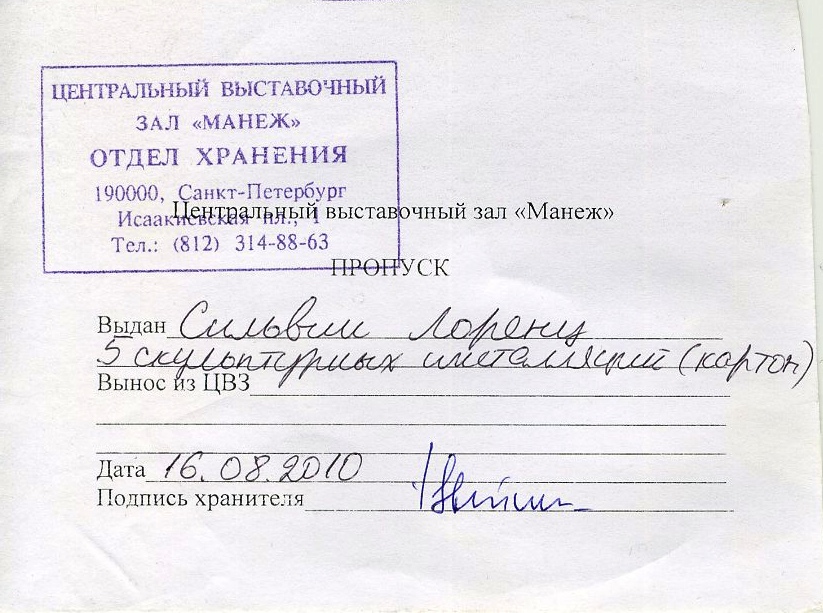 ЦЕНТРАЛЬНЫЙ ВЫСТАВОЧНЫЙ
ЗАЛ «МАНЕЖ»
ОТДЕЛ ХРАНЕНИЯ
190000, Санкт-Петербург
Исаакиевская пл., 1
Тел.: (812) 314-88-63
Центральный выставочный зал «Манеж»
ПРОПУСК
Выдан Сильвии Лоренц
5 скульптурных инсталляций (картон)
Вынос из ЦВЗ
Дата 16.08.2010
Подпись хранителя